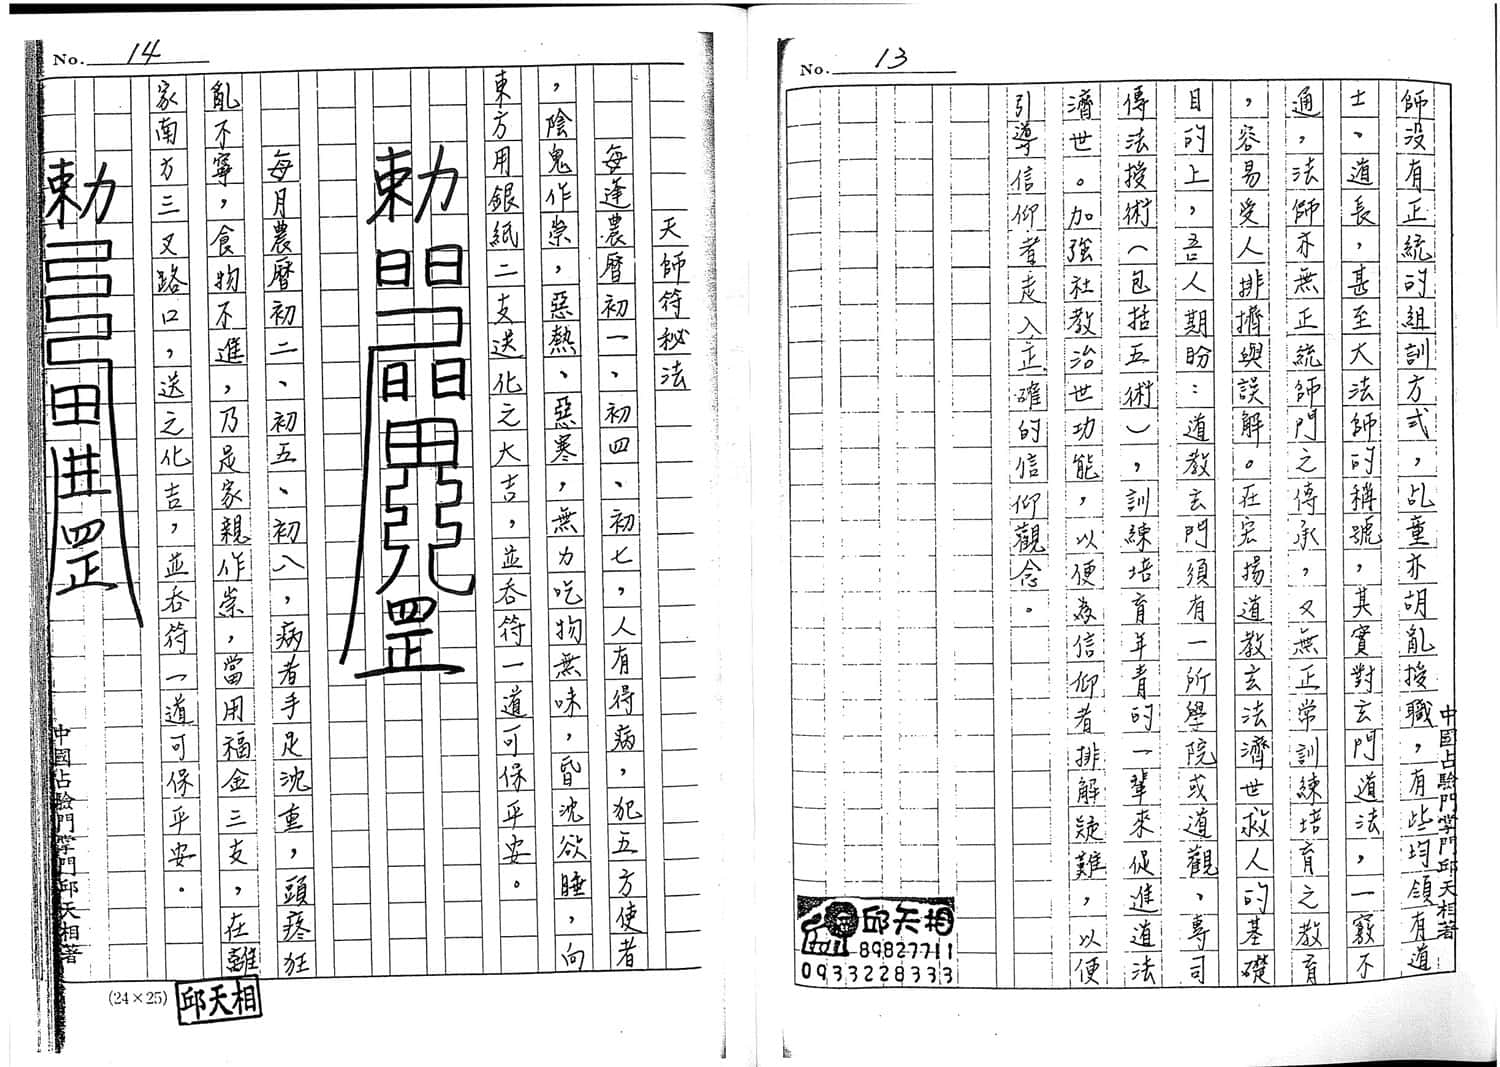 No. 13
師没有正統的組訓方式，乩童亦胡亂授職，有些均領有道
士、道長，甚至大法師的稱號，其實對玄門道法，一竅不
通，法師亦無正統師門之傳承，又無正常訓練培育之教育
，容易受人排擠與誤解。在宏揚道教玄法濟世救人的基礎
目的上，吾人期盼：道教玄門須有一所學院或道觀，專司
傳法授術（包括五術），訓練培育年青的一輩來促進道法
濟世。加強社教治世功能，以便為信仰者排解疑難，以便
引導信仰者走入正確的信仰觀念。
中國占驗門掌門邱天相著
邱天相
89827711
0933228333
No. 14
天師符秘法
每逢農曆初一、初四、初七，人有得病，犯五方使者
，陰鬼作祟，惡熱、惡寒，無力吃物無味，昏沈欲睡，向
東方用銀紙二支送化之大吉，並吞符一道可保平安。
勅
每月農曆初二、初五、初八，病者手足沈重，頭疼狂
亂不寧，食物不進，乃是家親作祟，當用福金三支，在離
家南方三叉路口，送之化吉，並吞符一道可保平安。
勅
中國占驗門掌門邱天相著
(24×25)
邱天相